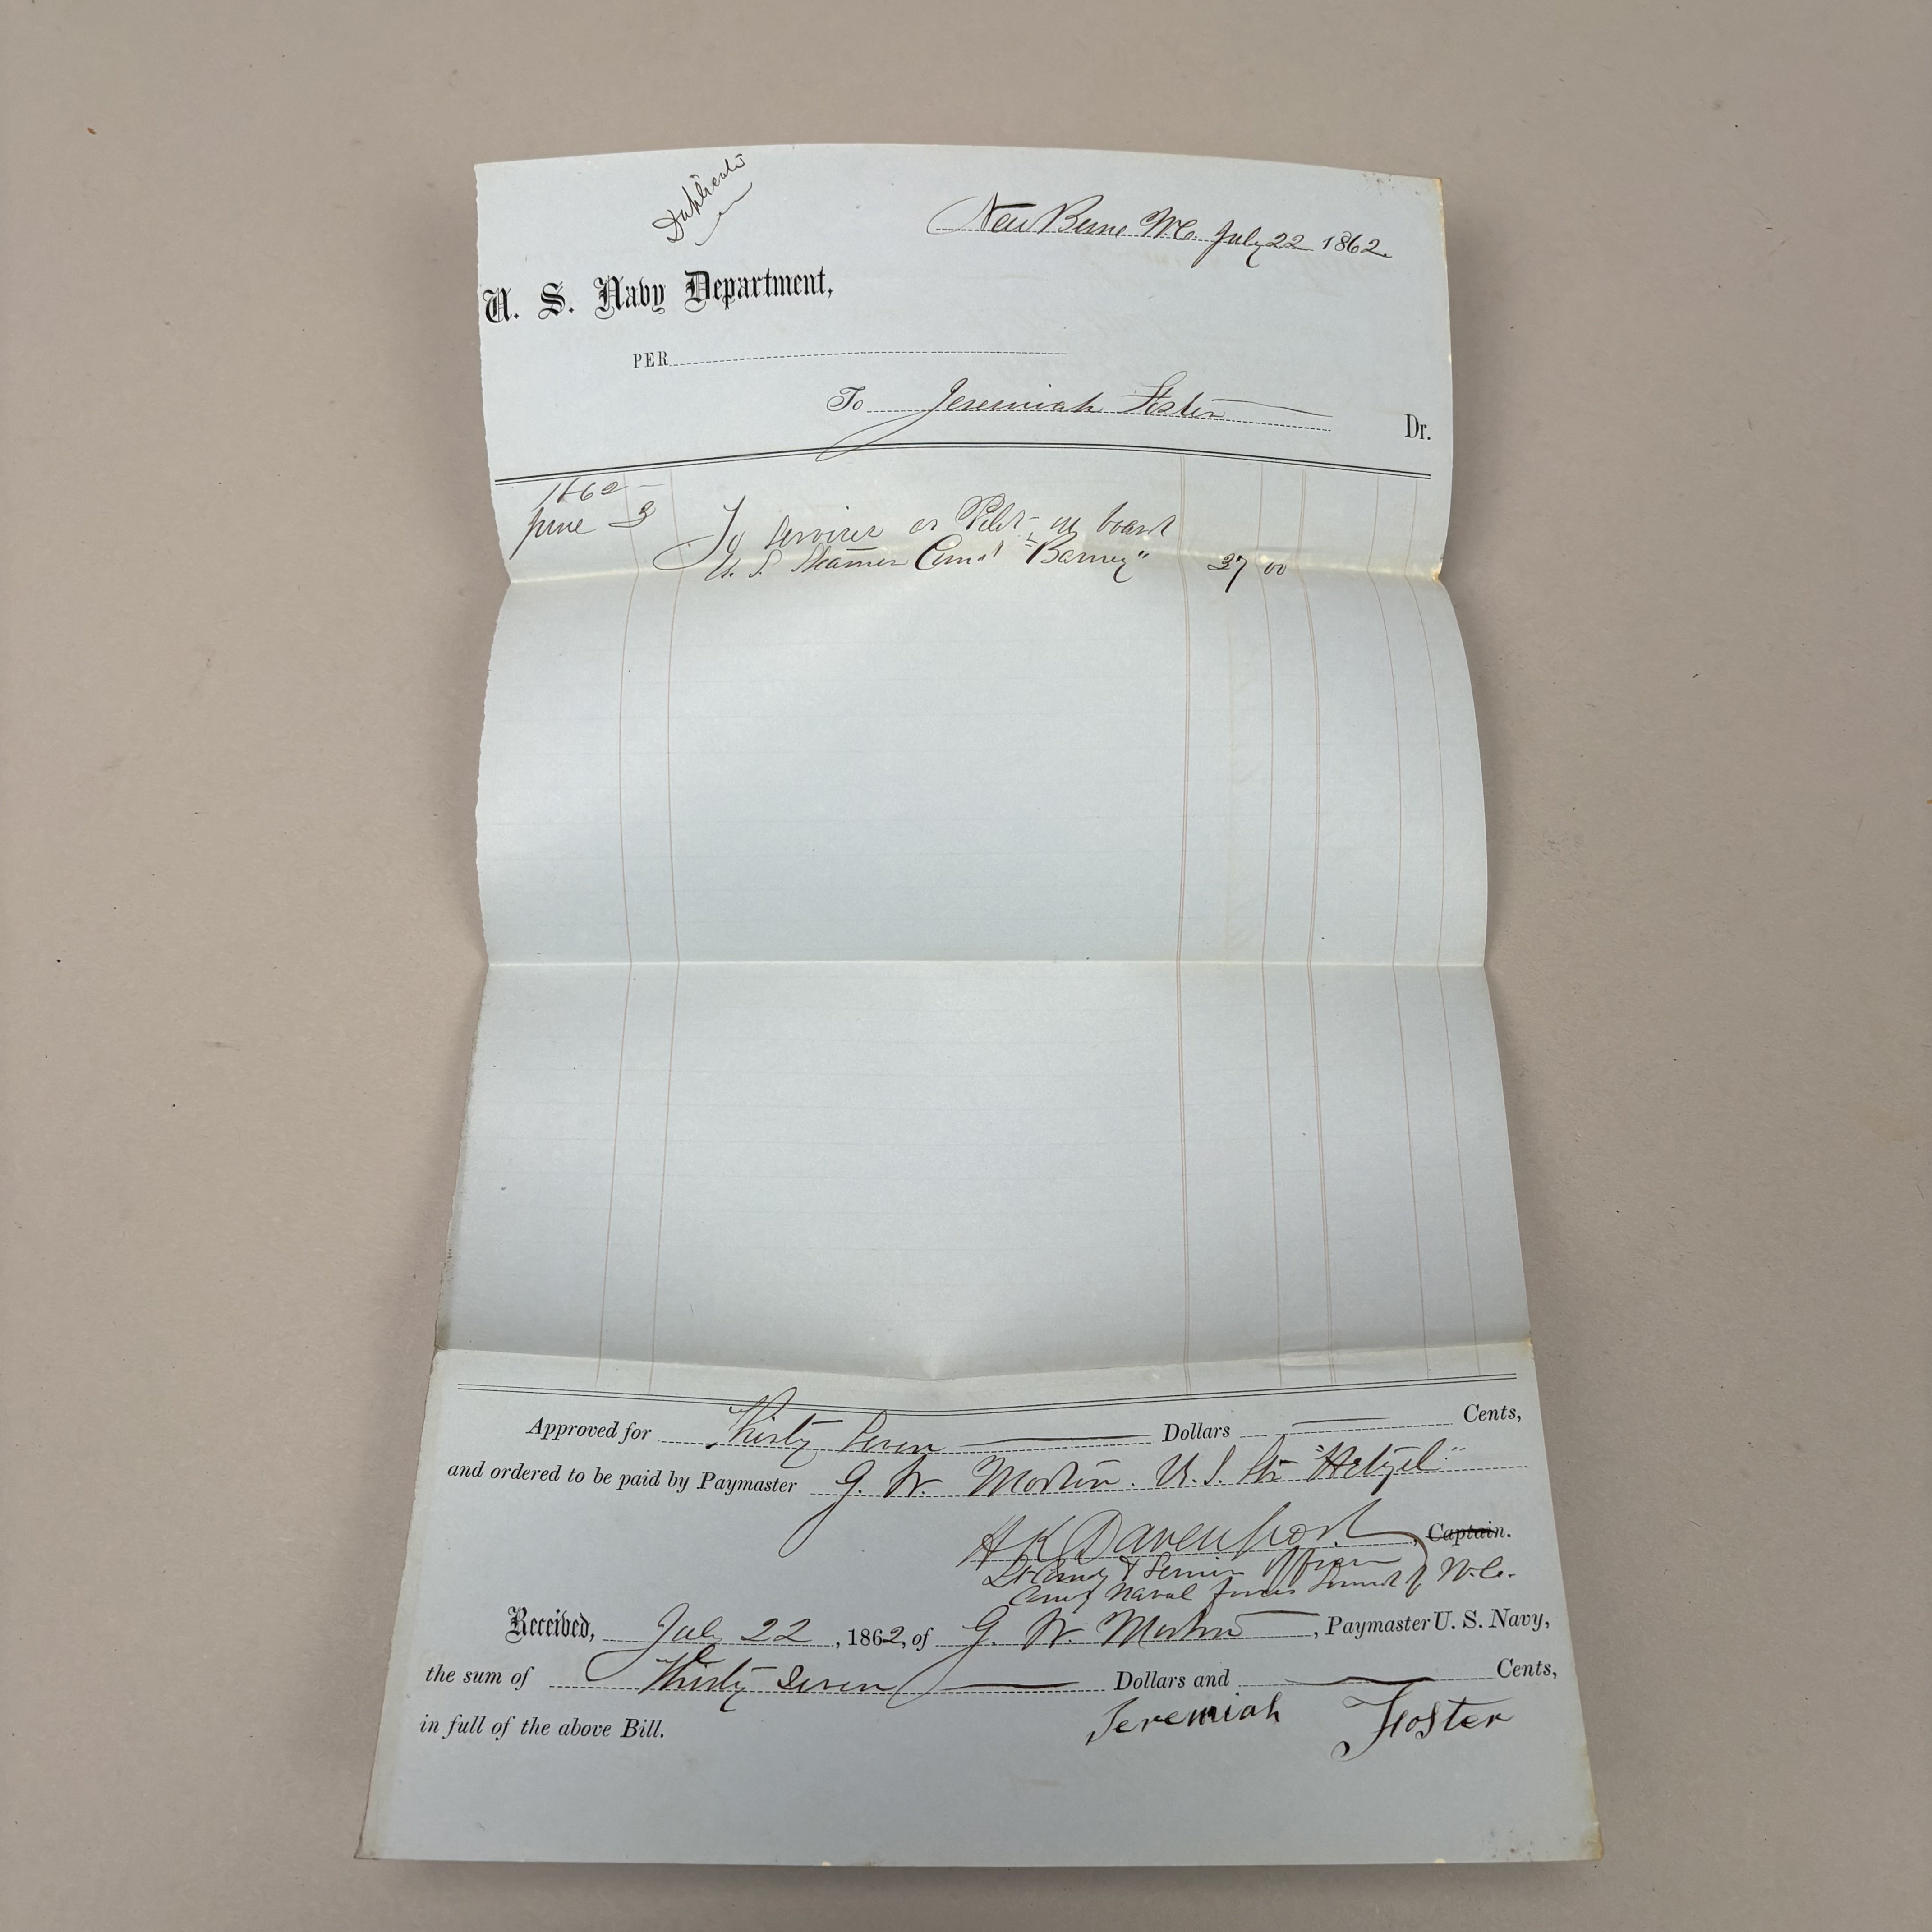 Duplicate
New Berne N.C. July 22 1862.
U. S. Navy Department,
PER
To Jeremiah Foster Dr.
1862
June 3 To services as Pilot on board
U. S. Steamer Comd "Barney" 37 00
Approved for Thirty Seven Dollars Cents,
and ordered to be paid by Paymaster G. W. Morton. U. S. Str "Hetzel"
H K Davenport, Captain.
Lt Comdg & Senior Officer
Comdg Naval Forces Sounds of N.C.
Received, July 22, 1862, of G. W. Morton, Paymaster U. S. Navy,
the sum of Thirty Seven Dollars and Cents,
in full of the above Bill. Jeremiah Foster